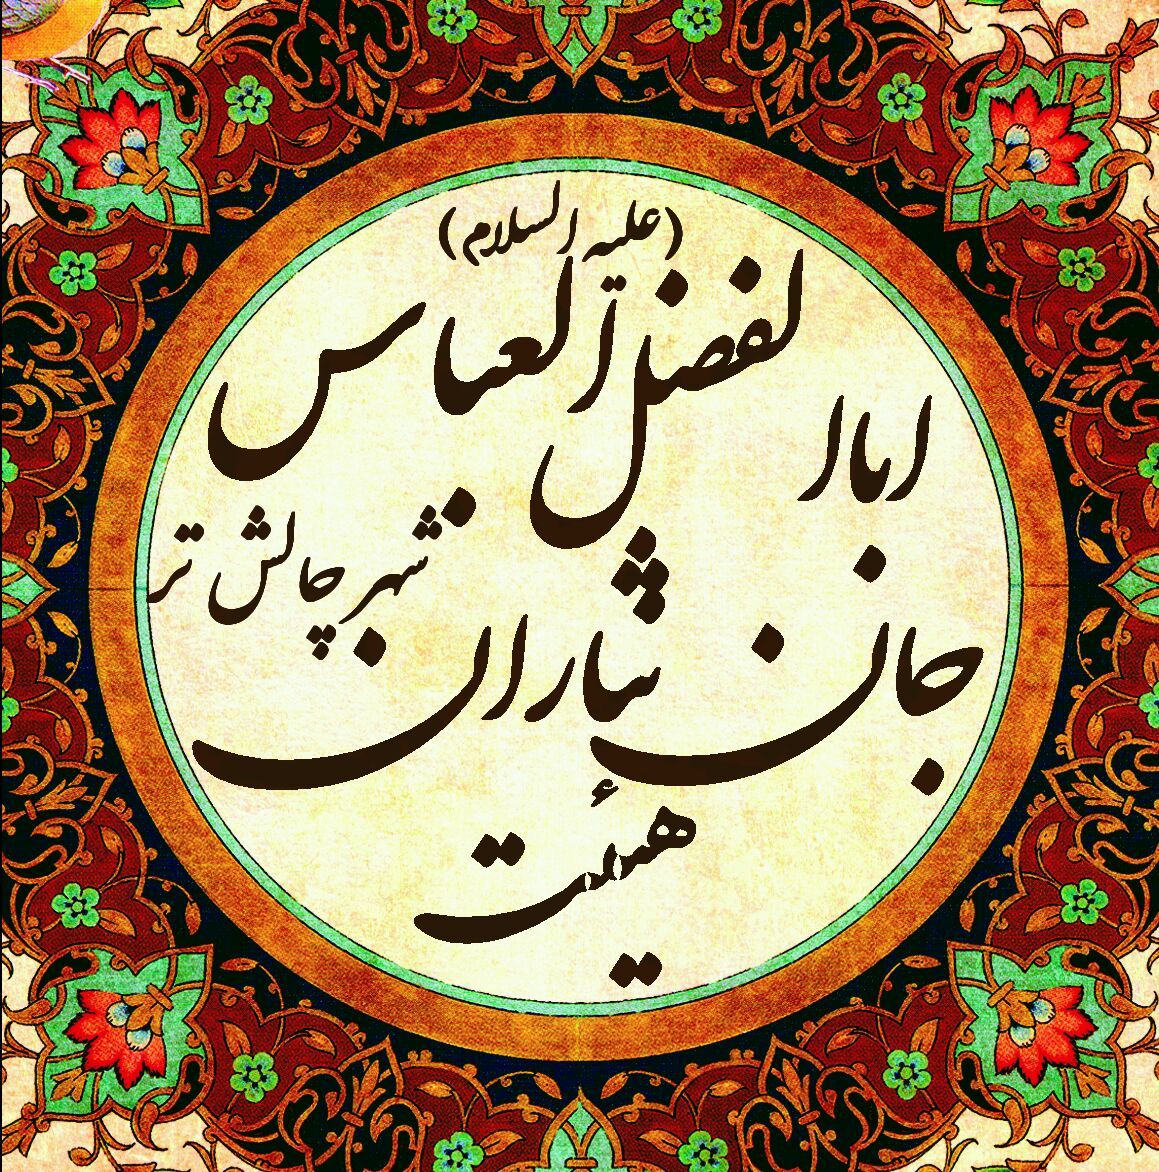 (علیه السلام)
ابالفضل العباس
شهر چالش تر
جان نثاران
هیئت